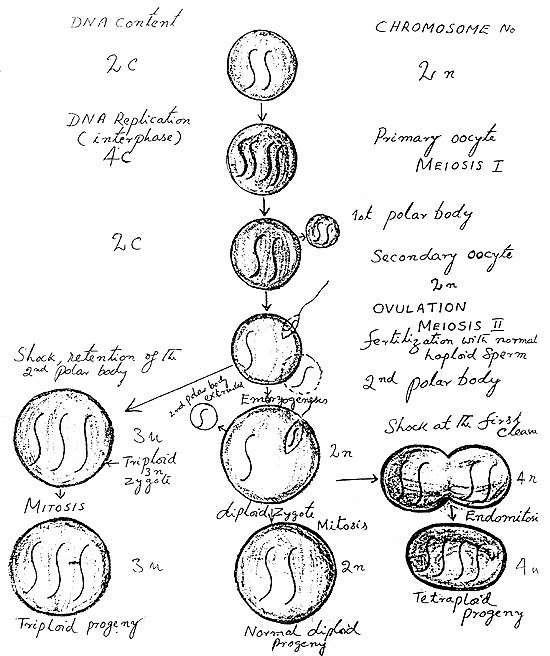 DNA Content
CHROMOSOME No
2C
2n
DNA Replication
(interphase)
4C
Primary oocyte
MEIOSIS I
1st polar body
2C
Secondary oocyte
2n
OVULATION
MEIOSIS II
fertilization with normal
haploid sperm
2nd polar body
Shock, retention of th
2nd polar body
2nd polar body
extruded
Embryogenesis
Shock at th first
Cleava
3n
Triploid
3n
Zygote
2n
4n
MITOSIS
diploid Zygote
Mitosis
Endomitosi
3n
2n
4n
Triploid progeny
Normal diploid
progeny
Tetraploid
progeny